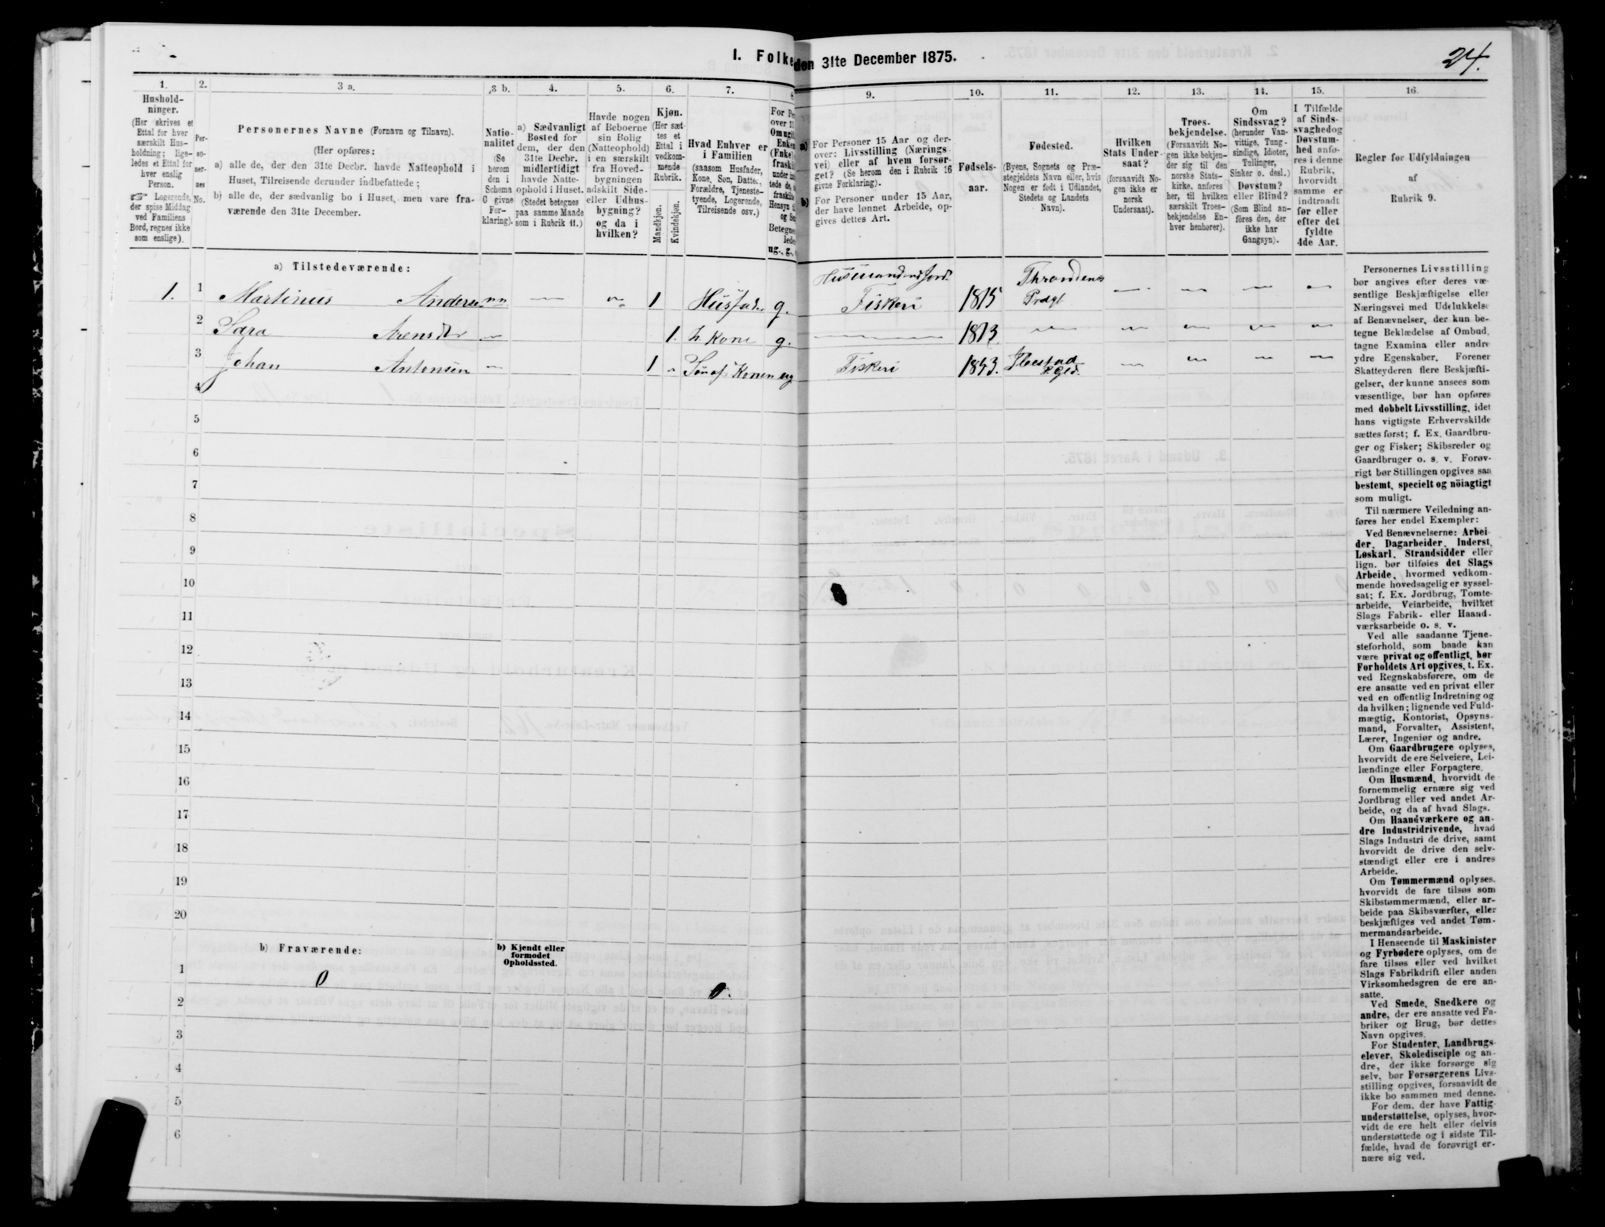 1. Folke
den 31te December 1875.
24.
1.
Hushold-
ninger.
(Her skrives et
Ettal for hver
særskilt Hus-
holdning; lige-
ledes et Ettal for
hver enslig
Person.
Logerende,
der spise Middag
ved Familiens
Bord, regnes ikke
som enslige).
2.
Per-
so-
ner-
nes
No.
3 a.
Personernes Navne (Fornavn og Tilnavn).
(Her opføres:
a) alle de, der den 31te Decbr. havde Natteophold i
Huset, Tilreisende derunder indbefattede;
b) alle de, der sædvanlig bo i Huset, men vare fra-
værende den 31te December.
3 b.
Natio-
nalitet
(Se
herom
den i
Schema
C givne
For-
klaring).
4.
a) Sædvanligt
Bosted for
dem, der den
31te Decbr.
midlertidigt
havde Natte-
ophold i Huset.
(Stedet betegnes
paa samme Maade
som i Rubrik 11.)
5.
Havde nogen
af Beboerne
sin Bolig
(Natteophold)
i en særskilt
fra Hoved-
bygningen
adskilt Side-
eller Udhus-
bygning?
og da i
hvilken?
6.
Kjøn.
(Her sæt-
tes et
Ettal i
vedkom-
mende
Rubrik.
Mandkjøn.
Kvindekjøn.
7.
Hvad Enhver er
i Familien
(saasom Husfader,
Kone, Søn, Datter,
Forældre, Tjeneste-
tyende, Logerende,
Tilreisende osv.)
9.
a) For Personer 15 Aar og der-
over: Livsstilling (Nærings-
vei) eller af hvem forsør-
get? (Se herom den i Rubrik 16
givne Forklaring).
b) For Personer under 15 Aar,
der have lønnet Arbeide, op-
gives dettes Art.
10.
Fødsels-
aar.
11.
Fødested.
(Byens, Sognets og Præ-
stegjeldets Navn eller, hvis
Nogen er født i Udlandet,
Stedets og Landets
Navn).
12.
Hvilken
Stats Under-
saat?
(forsaavidt No-
gen ikke er
norsk
Undersaat).
13.
Troes-
bekjendelse.
(Forsaavidt No-
gen ikke bekjen-
der sig til den
norske Stats-
kirke, anføres
her, til hvilken
særskilt Troes-
bekjendelse En-
hver henhører).
14.
Om
Sindssvag?
(herunder Van-
vittige, Tung-
sindige, Idioter,
Tullinger,
Sinker o. desl.)
Døvstum?
eller Blind?
(Som Blind an-
føres den, der
ikke har
Gangsyn).
15.
I Tilfælde
af Sinds-
svaghed og
Døvstum-
hed anfø-
res i denne
Rubrik,
hvorvidt
samme er
indtraadt
før eller
efter det
fyldte
4de Aar.
16.
Regler for Udfyldningen
af
Rubrik 9.
a) Tilstedeværende:
1. 1 Martinus Andersen nn 1 Husfader g. Husmand med Jord Fiskeri 1815 Throndenes Prægt
2 Sara 1. h. Kone g. 1813.
3 Johan Antonsen 1 Søn af Konen ug Fiskeri 1853.
4
5
6
7
8
9
10
11
12
13
14
15
16
17
18
19
20
b) Fraværende:
b) Kjendt eller
formodet
Opholdssted.
1 0
2 0.
3
4
5
6
Personernes Livsstilling
bør angives efter deres væ-
sentlige Beskjæftigelse eller
Næringsvei med Udelukkelse
af Benævnelser, der kun be-
tegne Beklædelse af Ombud,
tagne Examina eller andre
ydre Egenskaber. Forener
Skatteyderen flere Beskjæfti-
gelser, der kunne ansees som
væsentlige, bør han opføres
med dobbelt Livsstilling, idet
hans vigtigste Erhvervskilde
sættes først; f. Ex. Gaardbru-
ger og Fisker; Skibsreder og
Gaardbruger o. s. v. Forøv-
rigt bør Stillingen opgives saa
bestemt, specielt og nöiagtigt
som muligt.
Til nærmere Veiledning an-
føres her endel Exempler:
Ved Benævnelserne: Arbei-
der, Dagarbeider, Inderst,
Løskarl, Strandsidder eller
lign. bør tilføies det Slags
Arbeide, hvormed vedkom-
mende hovedsagelig er syssel-
sat; f. Ex. Jordbrug, Tomte-
arbeide, Veiarbeide, hvilket
Slags Fabrik- eller Haand-
værksarbeide o. s. v.
Ved alle saadanne Tjene-
steforhold, som baade kan
være privat og offentligt, bør
Forholdets Art opgives, f. Ex.
ved Regnskabsførere, om de
ere ansatte ved en privat eller
ved en offentlig Indretning og
da hvilken; lignende ved Fuld-
mægtig, Kontorist, Opsyns-
mand, Forvalter, Assistent,
Lærer, Ingeniør og andre.
Om Gaardbrugere oplyses,
hvorvidt de ere Selveiere, Lei-
lændinge eller Forpagtere.
Om Husmænd, hvorvidt de
fornemmelig ernære sig ved
Jordbrug eller ved andet Ar-
beide, og da af hvad Slags.
Om Haandværkere og an-
dre Industridrivende, hvad
Slags Industri de drive, samt
hvorvidt de drive den selv-
stændigt eller ere i andres
Arbeide.
Om Tømmermænd oplyses,
hvorvidt de fare tilsøs som
Skibstømmermænd, eller ar-
beide paa Skibsværfter, eller
beskjæftiges ved andet Tøm-
mermandsarbeide.
I Henseende til Maskinister
og Fyrbødere oplyses, om de
fare tilsøs eller ved hvilket
Slags Fabrikdrift eller anden
Virksomhedsgren de ere an-
satte.
Ved Smede, Snedkere og
andre, der ere ansatte ved Fa-
briker og Brug, bør dettes
Navn opgives.
For Studenter, Landbrugs-
elever, Skoledisciple og an-
dre, der ikke forsørge sig
selv, bør Forsørgerens Livs-
stilling opgives, forsaavidt de
ikke bo sammen med denne.
For dem, der have Fattig-
understøttelse, oplyses, hvor-
vidt de ere helt eller delvis
understøttede og i sidste Til-
fælde, hvad de forøvrigt er-
nære sig ved.